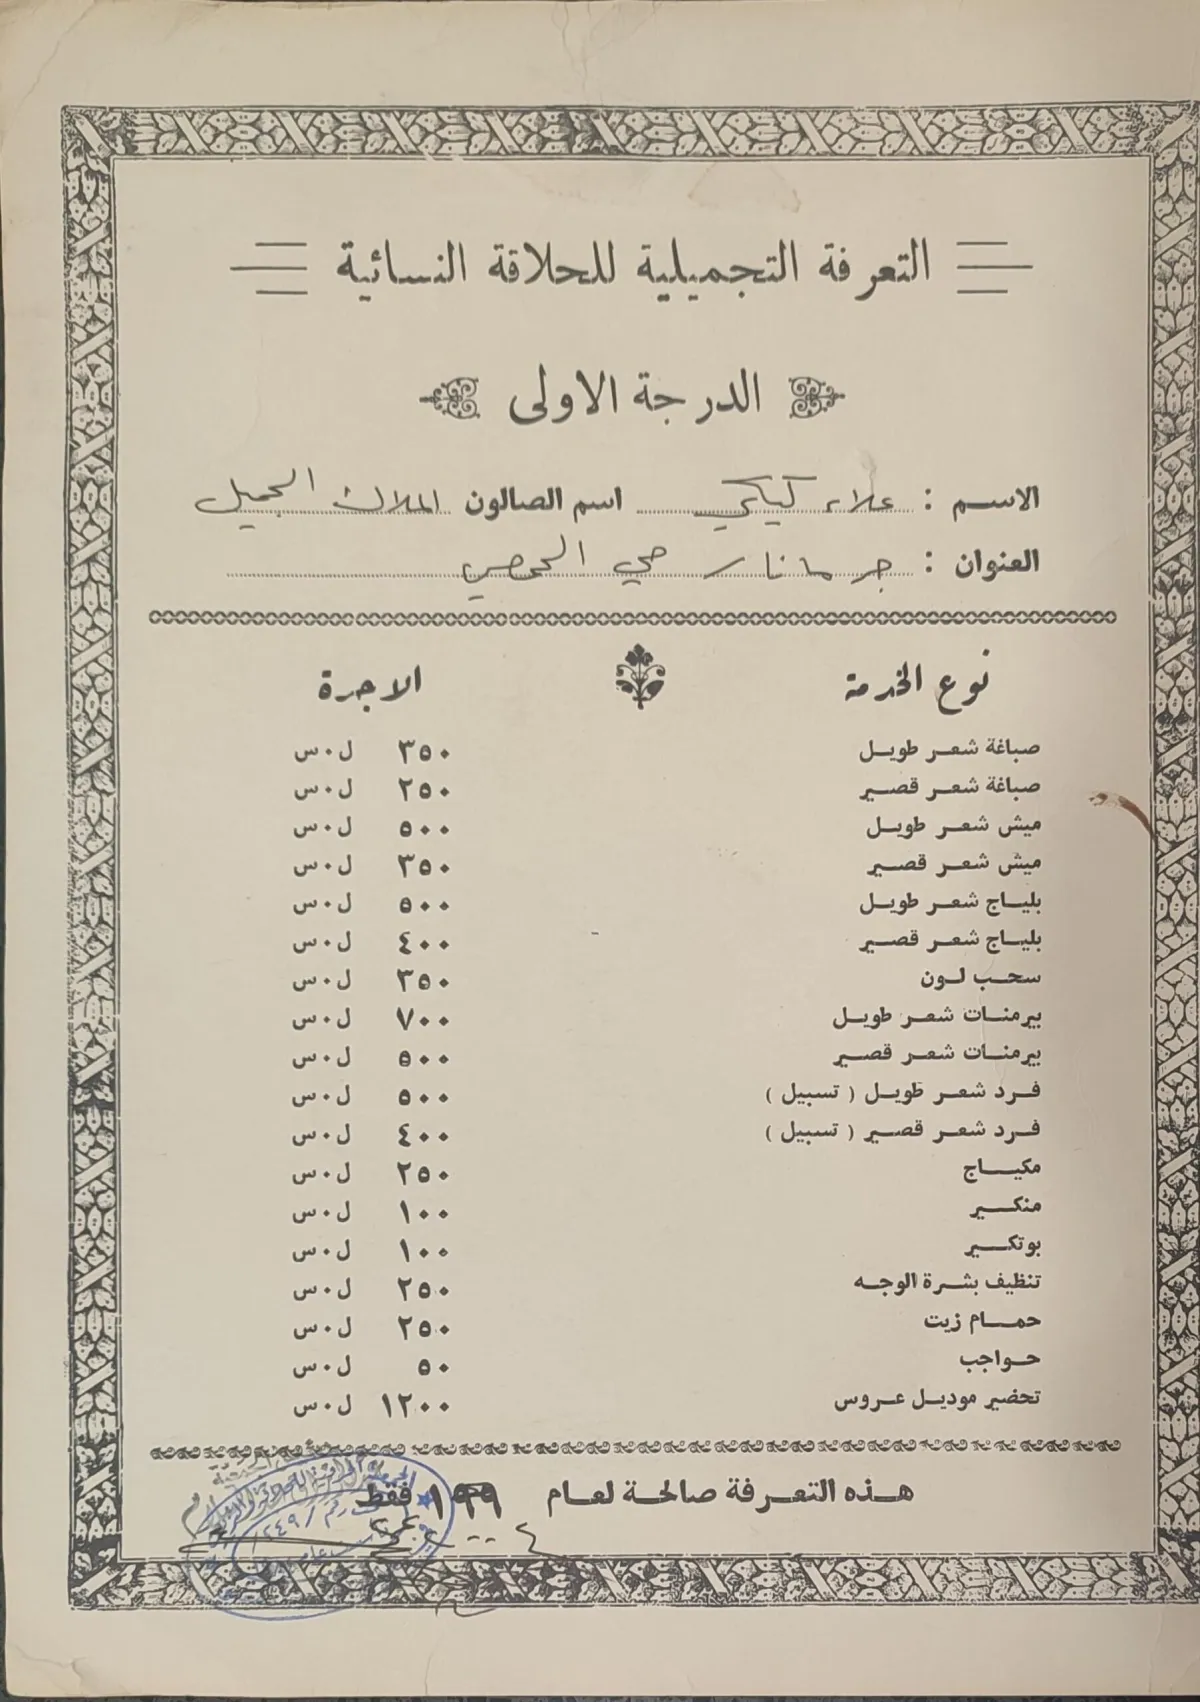 التعرفة التجميلية للحلاقة النسائية
الدرجة الاولى
الاسم : علاء كيكي اسم الصالون الملاك الجميل
العنوان : جرمانا حي الحمصي
نوع الخدمة الاجرة
صباغة شعر طويل ٣٥٠ ل٠س
صباغة شعر قصير ٢٥٠ ل٠س
ميش شعر طويل ٥٠٠ ل٠س
ميش شعر قصير ٣٥٠ ل٠س
بلياج شعر طويل ٥٠٠ ل٠س
بلياج شعر قصير ٤٠٠ ل٠س
سحب لون ٣٥٠ ل٠س
بيرمنات شعر طويل ٧٠٠ ل٠س
بيرمنات شعر قصير ٥٠٠ ل٠س
فرد شعر طويل ( تسبيل ) ٥٠٠ ل٠س
فرد شعر قصير ( تسبيل ) ٤٠٠ ل٠س
مكياج ٢٥٠ ل٠س
منكير ١٠٠ ل٠س
بوتكير ١٠٠ ل٠س
تنظيف بشرة الوجه ٢٥٠ ل٠س
حمام زيت ٢٥٠ ل٠س
حواجب ٥٠ ل٠س
تحضير موديل عروس ١٢٠٠ ل٠س
هذه التعرفة صالحة لعام ١٩٩٩ فقط